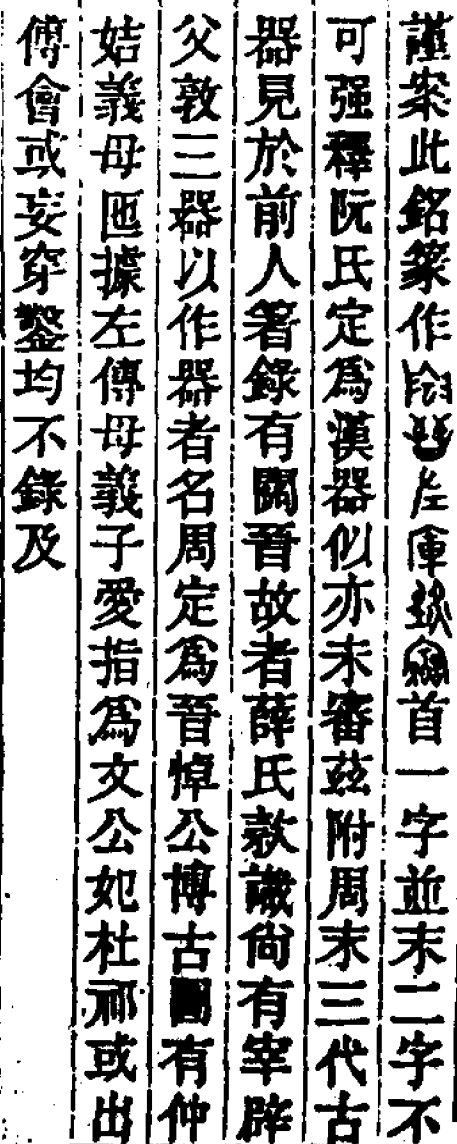 謹案此銘篆作左庫首一字並末二字不
可强釋阮氏定為漢器似亦未審茲附周末三代古
器見於前人著錄有關晉故者薛氏款識尙有宰辟
父敦三器以作器者名周定為晉悼公博古圖有仲
姞義母匜據左傳母義子愛指為文公妃杜祁或出
傅會或妄穿鑿均不錄及